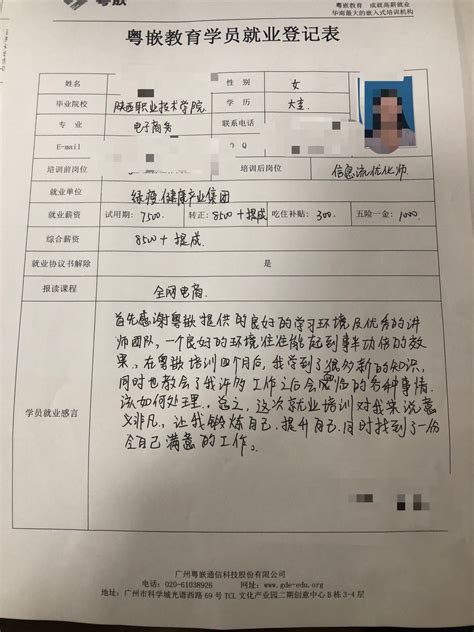 粤嵌
粤嵌教育 成就高薪就业
华南最大的嵌入式培训机构
粤嵌教育学员就业登记表
姓名 性别 女
毕业院校 陕西职业技术学院 学历 大专
专业 电子商务 联系电话
E-mail
培训前岗位 培训后岗位 信息流优化师
就业单位 健康产业集团
就业薪资 试用期：7500. 转正：8500+提成 吃住补贴：300. 五险一金：1000
综合薪资 8500+提成.
就业协议书解除 是
报读课程 全网电商.
学员就业感言
首先感谢粤嵌提供的良好的学习环境及优秀的讲
师团队，一个良好的环境往往能起到事半功倍的效
果。在粤嵌培训四个月后，我学到了很多新的知识，
同时也教会了我许多工作之后会面临的各种事情
该如何处理。总之，这次就业培训对我来说意
义非凡，让我锻炼自己.提升自己.同时找到了一份
令自己满意的工作。
广州粤嵌通信科技股份有限公司
电话：020-61038926 网址：www.gde-edu.org
地址：广州市科学城光谱西路 69 号 TCL 文化产业园二期创意中心 B 栋 3-4 层